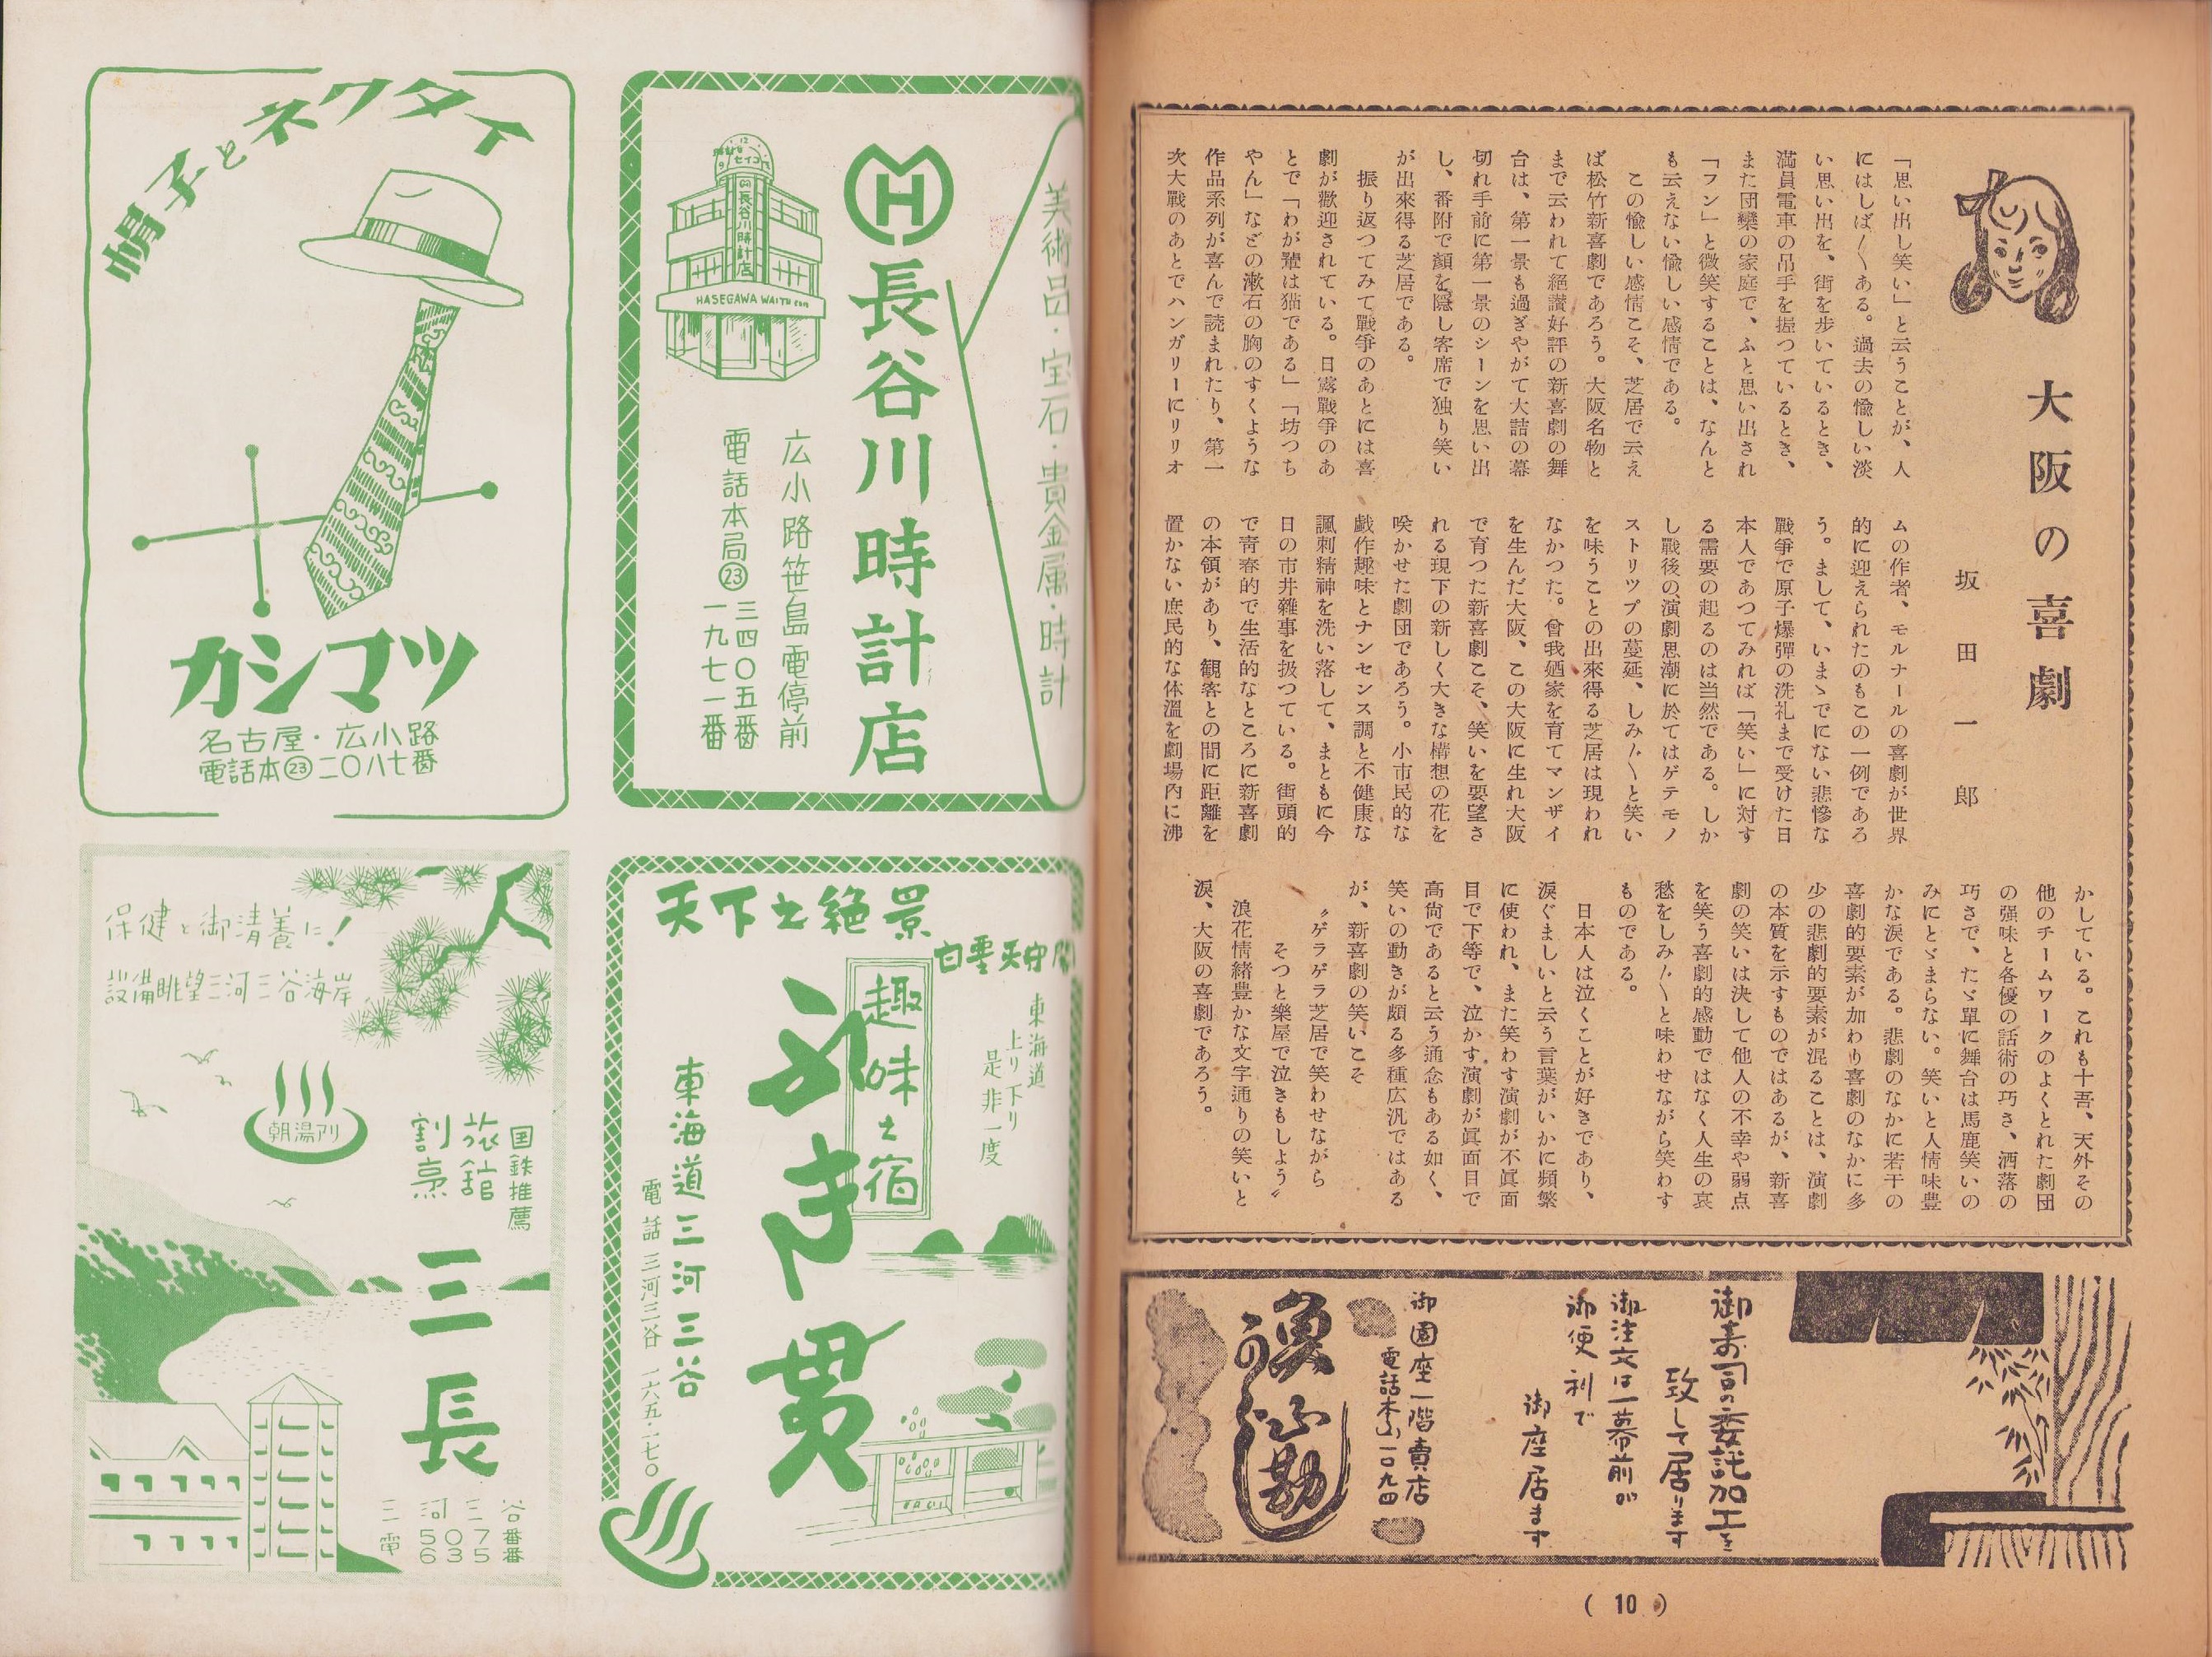 大阪の喜劇
坂田一郎
「思い出し笑い」と云うことが、人
にはしば〳〵ある。過去の愉しい淡
い思い出を、街を歩いているとき、
満員電車の吊手を握つているとき、
また団欒の家庭で、ふと思い出され
「フン」と微笑することは、なんと
も云えない愉しい感情である。
この愉しい感情こそ、芝居で云え
ば松竹新喜劇であろう。大阪名物と
まで云われて絶讃好評の新喜劇の舞
台は、第一景も過ぎやがて大詰の幕
切れ手前に第一景のシーンを思い出
し、番附で顔を隠し客席で独り笑い
が出來得る芝居である。
振り返つてみて戰爭のあとには喜
劇が歡迎されている。日露戰爭のあ
とで「わが輩は猫である」「坊つち
やん」などの漱石の胸のすくような
作品系列が喜んで読まれたり、第一
次大戰のあとでハンガリーにリリオ
ムの作者、モルナールの喜劇が世界
的に迎えられたのもこの一例であろ
う。まして、いまゝでにない悲惨な
戰爭で原子爆彈の洗礼まで受けた日
本人であつてみれば「笑い」に対す
る需要の起るのは当然である。しか
し戰後の演劇思潮に於てはゲテモノ
ストリツプの蔓延、しみ〴〵と笑い
を味うことの出來得る芝居は現われ
なかつた。曾我廼家を育てマンザイ
を生んだ大阪、この大阪に生れ大阪
で育つた新喜劇こそ、笑いを要望さ
れる現下の新しく大きな構想の花を
咲かせた劇団であろう。小市民的な
戯作趣味とナンセンス調と不健康な
諷刺精神を洗い落して、まともに今
日の市井雜事を扱つている。街頭的
で靑春的で生活的なところに新喜劇
の本領があり、観客との間に距離を
置かない庶民的な体溫を劇場內に沸
かしている。これも十吾、天外その
他のチームワークのよくとれた劇団
の強味と各優の話術の巧さ、洒落の
巧さで、たゞ單に舞台は馬鹿笑いの
みにとゞまらない。笑いと人情味豊
かな涙である。悲劇のなかに若干の
喜劇的要素が加わり喜劇のなかに多
少の悲劇的要素が混ることは、演劇
の本質を示すものではあるが、新喜
劇の笑いは決して他人の不幸や弱点
を笑う喜劇的感動ではなく人生の哀
愁をしみ〴〵と味わせながら笑わす
ものである。
日本人は泣くことが好きであり、
涙ぐましいと云う言葉がいかに頻繁
に使われ、また笑わす演劇が不眞面
目で下等で、泣かす演劇が眞面目で
高尙であると云う通念もある如く、
笑いの動きが頗る多種広汎ではある
が、新喜劇の笑いこそ
〝ゲラゲラ芝居で笑わせながら
そつと樂屋で泣きもしよう〟
浪花情緒豊かな文字通りの笑いと
涙、大阪の喜劇であろう。
御寿司の委託加工を
致して居ります
御注文は一幕前が
御便利で
御座居ます
御園座一階賣店
電話本 一〇九四
魚山勘
( 10 )
美術品・宝石・貴金属・時計
長谷川時計店
広小路笹島電停前
電話本局㉓三四〇五番
一九七一番
セイコー
長谷川時計店
HASEGAWA WATCH
帽子とネクタイ
カシマツ
名古屋・広小路
電話本㉓二〇八七番
天下之絶景
白雲天守閣
東海道
上り下り
是非一度
趣味之宿
ふき貫
東海道三河三谷
電話三河三谷一六五・一七〇
保健と御清養に！
設備眺望三河三谷海岸
朝湯アリ
国鉄推薦
旅館
割烹
三長
三河三谷
電 507番
635番